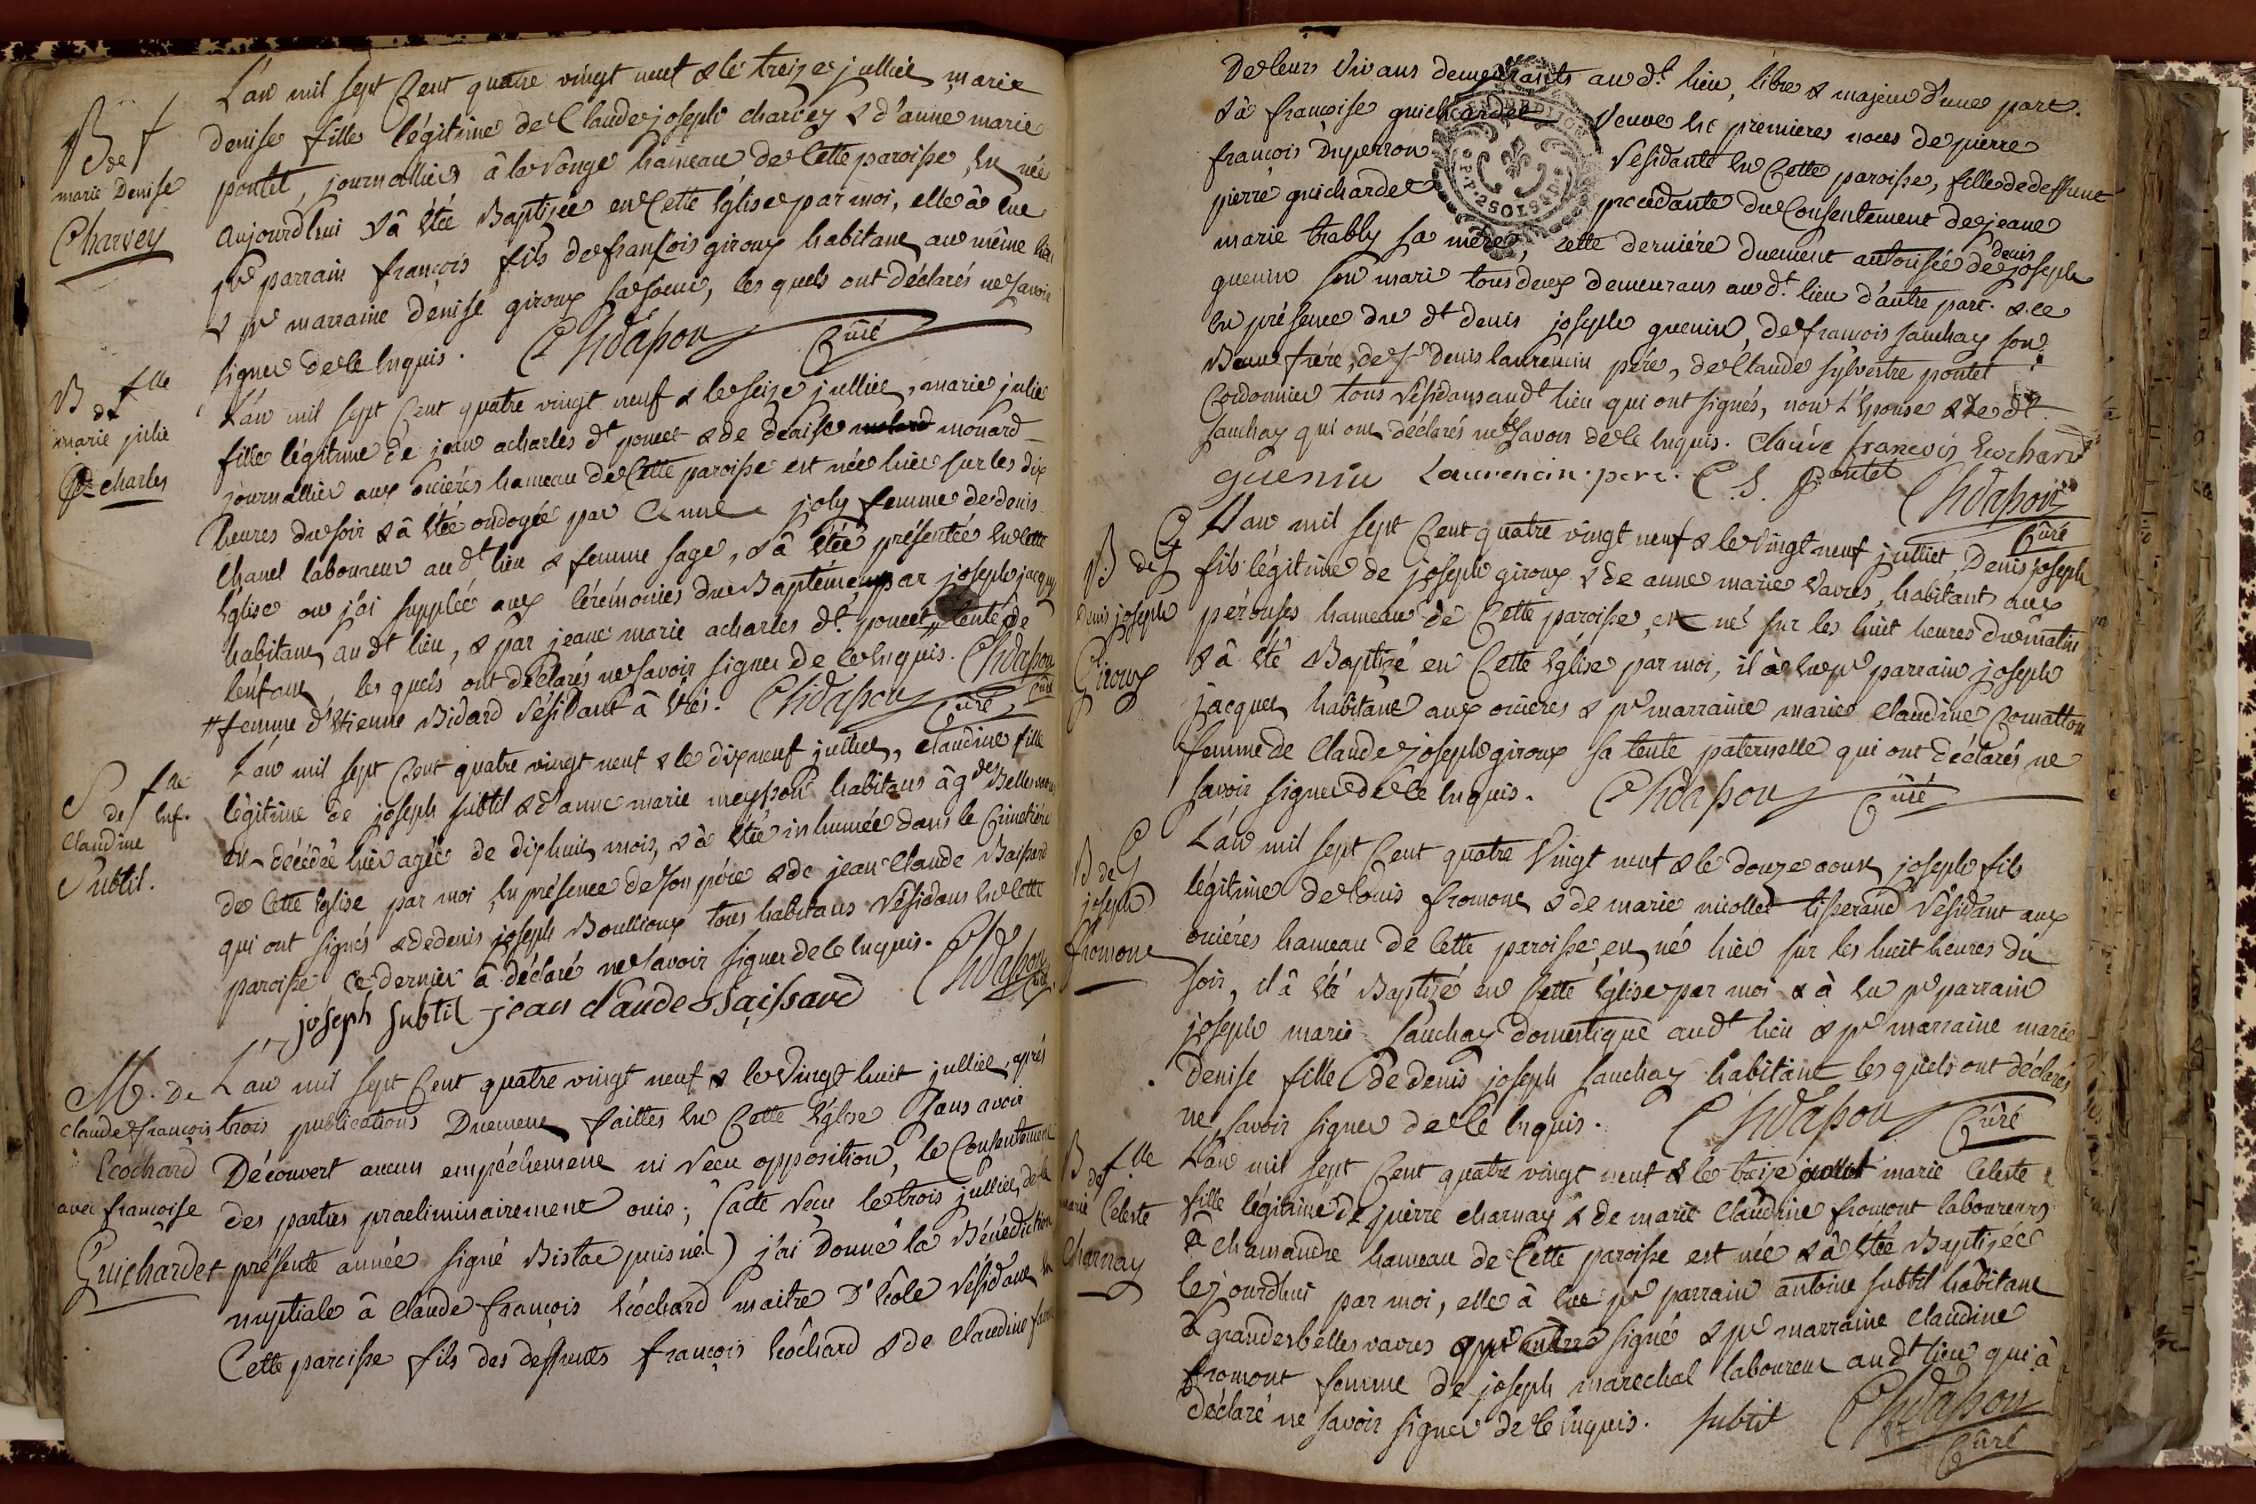 L'an mil sept Cent quatre vingt neuf & le treize julliet, marie
B de f
denise fille légitime de Claude joseph charvey & d'anne marie
marie Denise
pontet, journalliers à la vonge hameau de Cette paroisse, est née
Charvey
aujourd'hui & à été Baptizée en Cette église par moi, elle à eue
pr parrain françois fils de françois giroux habitant au même lieu
& pr marraine denise giroux sa soeur, les quels ont déclarés ne savoir
signer de ce Enquis. Chdasson Curé
B de flle
marie julie
charles
L'an mil sept Cent quatre vingt neuf & le seize julliet, marie julie
fille légitime de jean acharles dt poncet & de denise monard
journallier aux ociéres hameau de Cette paroisse est née hier sur les dix
heures du soir & à été ondoyée par Anne joly femme de denis
Chanel laboureur audt lieu & femme sage, & à été présentée en Cette
église ou j'ai supplée aux Cérémonies du Baptême, par joseph jacquet
habitant audt lieu, & par jeane marie acharles dt poncet, tente de
l'enfant, les quels ont déclarés ne savoir signer de ce Enquis. Chdasson Curé
# femme d'Etienne Bidard résidant à Chdasson Curé
S de flle enf.
Claudine
Subtil.
L'an mil sept Cent quatre vingt neuf & le dix neuf julliet, Claudine fille
légitime de joseph subtil & d'anne marie meysson habitans à gdes Bellesvavres
est décédée hier agée de dix huit mois, & à été inhumée dans le Cimetière
de Cette église par moi en présence de son père & de jean Claude Baissard
qui ont signés & de denis joseph Boullioux tous habitans résidans en Cette
paroisse ce dernier à déclaré ne savoir signer de ce Enquis. Chdasson Curé
joseph subtil jean claude Baissard
M. De
claude françois
Ecochard
avec françoise
Guichardet
L'an mil sept Cent quatre vingt neuf & le Vingt huit julliet, après
trois publications Duement faittes en Cette église sans avoir
Découvert aucun empéchement ni reçu opposition, le Consentement
des parties praeliminairement ouis; (acte reçu le trois julliet, de la
présente année signé Bistac puisné) j'ai Donné la Bénédiction
nuptiale à Claude françois Ecochard maitre D'école résidant en
Cette paroisse fils des deffunts françois Ecochard & de Claudine
De leurs Vivans demeurants au dt lieu, libre & majeur d'une part.
& à françoise guichardet Veuve en premieres noces de pierre
françois Duperron résidante en Cette paroisse, fille de deffunt
pierre guichardet procedante du Consentement de jeane
marie trably sa mère, cette dernière duement autorisée de denis joseph
guenin son mari tous deux demeurans audt lieu d'autre part. & ce
en présence du dt denis joseph guenin, de françois sauchay son
Beau frère, de sr denis laurencin père, de Claude sylvestre pontet
Cordonnier tous résidans audt lieu qui ont signés, non L'épouse & le dt
sauchay qui ont déclarés ne le savoir de ce Enquis. claude françois Ecochard
guenin Laurencin père. C. S. pontet Chdasson Curé
B de G
denis joseph
Giroux
L'an mil sept Cent quatre vingt neuf & le vingt neuf julliet, Denis joseph
fils légitime de joseph giroux & de anne marie vavres, habitant aux
pérouses hameau de Cette paroisse, est né sur les huit heures du matin
& à été Baptizé en Cette église par moi, il à eu pr parrain joseph
jacquet habitant aux ocieres & pr marraine marie Claudine Comatton
femme de Claude joseph giroux sa tente paternelle qui ont déclarés ne
savoir signer de ce Enquis. Chdasson Curé
B de G
joseph
fromont
L'an mil sept Cent quatre Vingt neuf & le douze aoust joseph fils
légitime de louis fromont & de marie nicollet tisserand résidant aux
ociéres hameau de Cette paroisse est né hier sur les huit heures du
soir, il à été Baptizé en Cette église par moi & à eu pr parrain
joseph marie sauchay domestique audt lieu & pr marraine marie
Denise fille de denis joseph sauchay habitant les quels ont déclarés
ne savoir signer de ce Enquis. Chdasson Curé
B de flle
marie Celeste
Charnay
L'an mil sept Cent quatre vingt neuf & le treize marie Celeste
fille légitime de pierre charnay & de marie Claudine fromont laboureurs
à chamandre hameau de Cette paroisse est née & à été Baptizée
Cejourdhui par moi, elle à eue pr parrain antoine subtil habitant
à grandes belles vavres signé & pr marraine Claudine
fromont femme de joseph marechal laboureur audt lieu qui à
déclaré ne savoir signer de ce Enquis. subtil Chdasson Curé